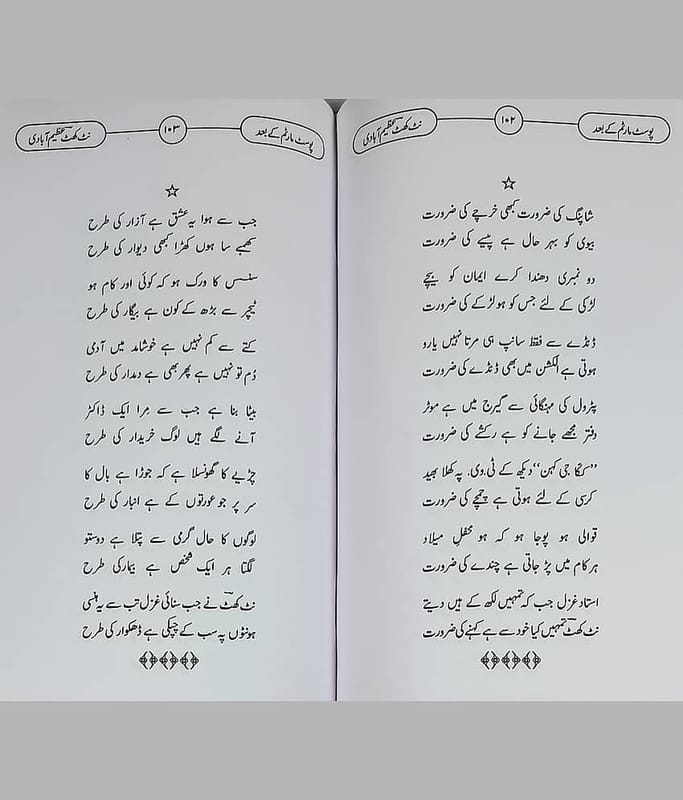 پوسٹ مارٹم کے بعد
۱۰۲
نٹ کھٹ عظیم آبادی
شاپنگ کی ضرورت کبھی خرچے کی ضرورت
بیوی کو بہر حال ہے پیسے کی ضرورت
دو نمبری دھندا کرے ایمان کو بیچے
لڑکی کے لئے جس کو ہو لڑکے کی ضرورت
ڈنڈے سے فقط سانپ ہی مرتا نہیں یارو
ہوتی ہے الکشن میں بھی ڈنڈے کی ضرورت
پٹرول کی مہنگائی سے گیرج میں ہے موٹر
دفتر مجھے جانے کو ہے رکشے کی ضرورت
جی کہن‘‘ دیکھ کے ٹی.وی. پہ کھلا بھید
کرسی کے لئے ہوتی ہے چمچے کی ضرورت
قوالی ہو پوجا ہو کہ ہو محفلِ میلاد
ہر کام میں پڑ جاتی ہے چندے کی ضرورت
استاد غزل جب کہ تمہیں لکھ کے ہیں دیتے
نٹ کھٹؔ تمہیں کیا خود سے ہے کہنے کی ضرورت
پوسٹ مارٹم کے بعد
۱۰۳
نٹ کھٹ عظیم آبادی
جب سے ہوا یہ عشق ہے آزار کی طرح
کھمبے سا ہوں کھڑا کبھی دیوار کی طرح
سنسس کا ورک ہو کہ کوئی اور کام ہو
ٹیچر سے بڑھ کے کون ہے بیگار کی طرح
کتے سے کم نہیں ہے خوشامد میں آدمی
دُم تو نہیں ہے پھر بھی ہے دمدار کی طرح
بیٹا بنا ہے جب سے مِرا ایک ڈاکٹر
آنے لگے ہیں لوگ خریدار کی طرح
چڑیے کا گھونسلا ہے کہ جوڑا ہے بال کا
سر پر جو عورتوں کے ہے انبار کی طرح
لوگوں کا حال گرمی سے پتلا ہے دوستو
لگتا ہر ایک شخص ہے بیمار کی طرح
نٹ کھٹؔ نے جب سنائی غزل تب سے یہ ہنسی
ہونٹوں پہ سب کے چپکی ہے ڈھکوار کی طرح